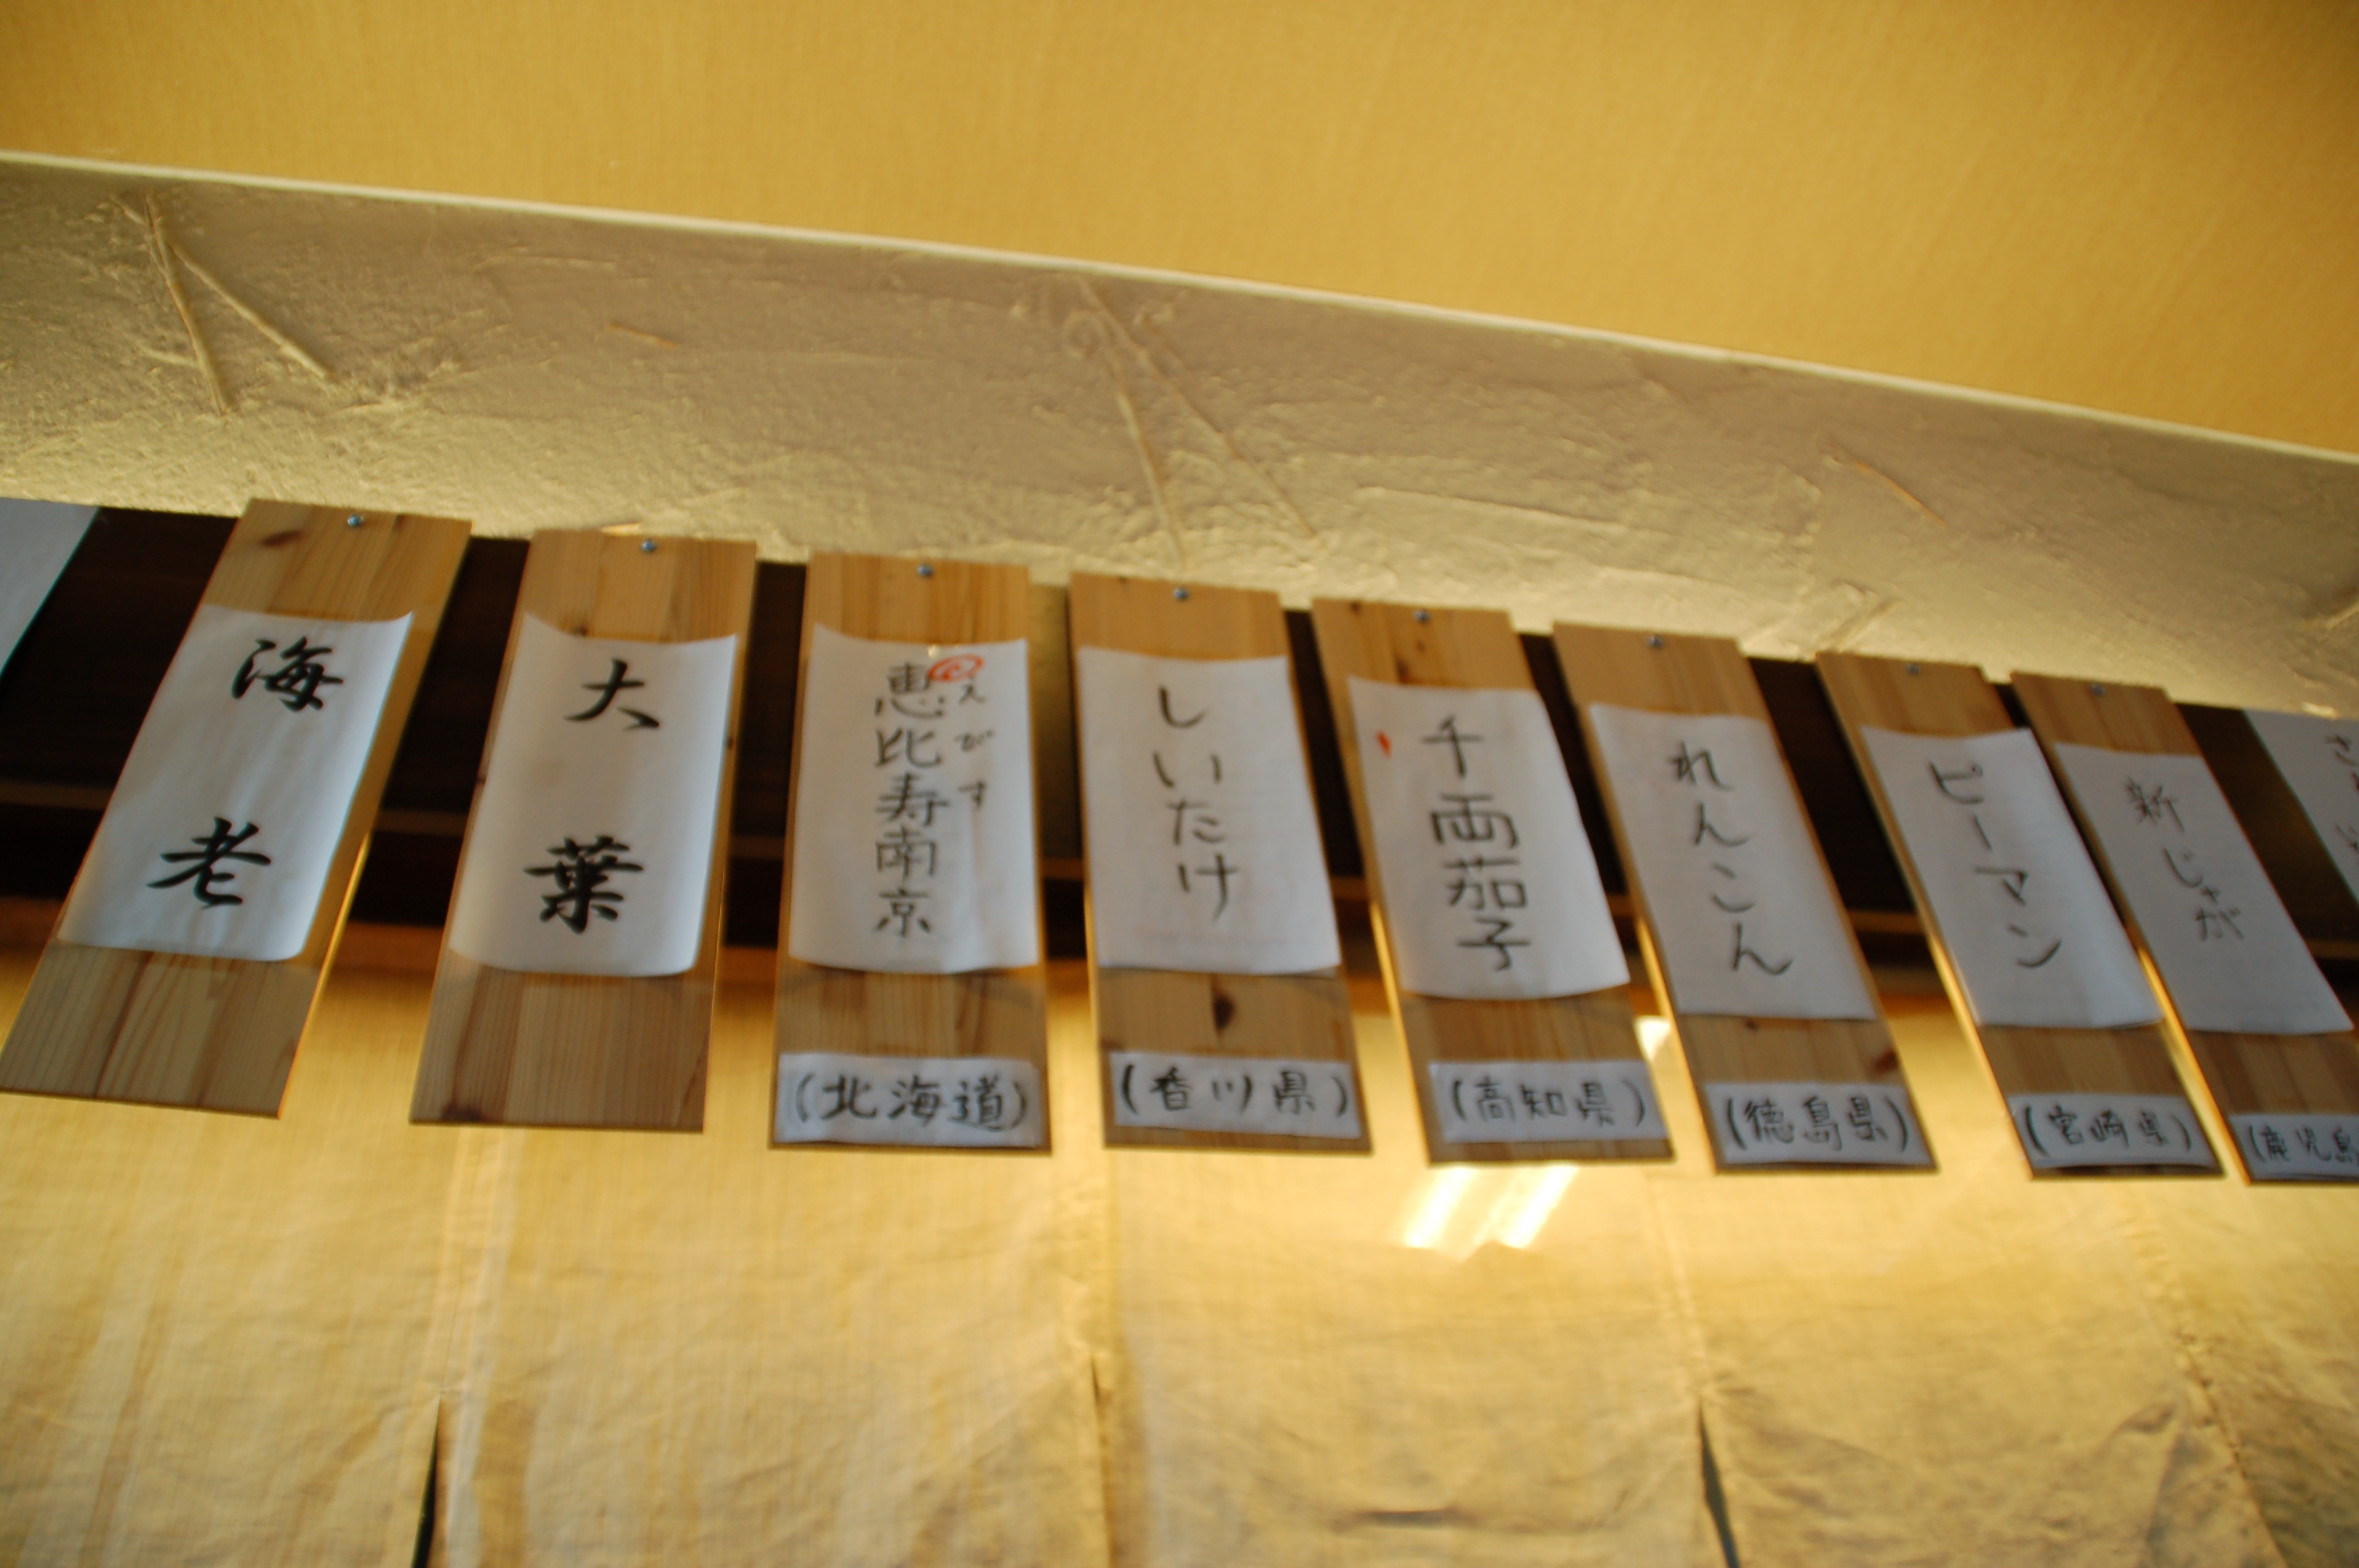 海老
大葉
恵比寿南京
えびす
(北海道)
しいたけ
(香川県)
千両茄子
(高知県)
れんこん
(徳島県)
ピーマン
(宮崎県)
新じゃが
(鹿児島
さ